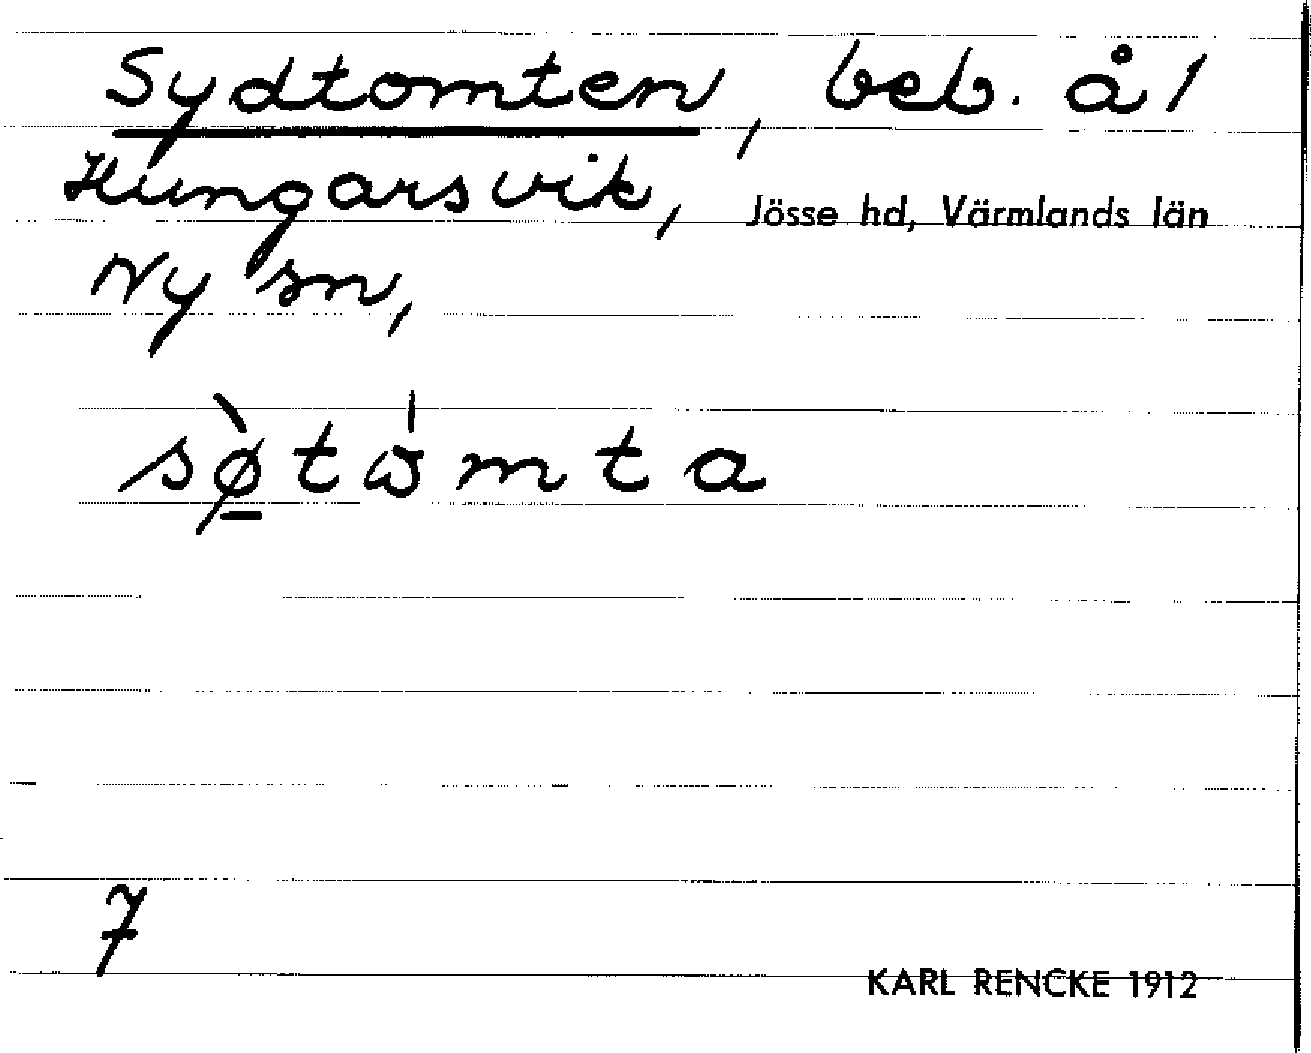 Sydtomten, beb. å 1
Hungarsvik, Jösse hd, Värmlands län
Ny sn,
sø̠̀tɷ̍mta
7
KARL RENCKE 1912